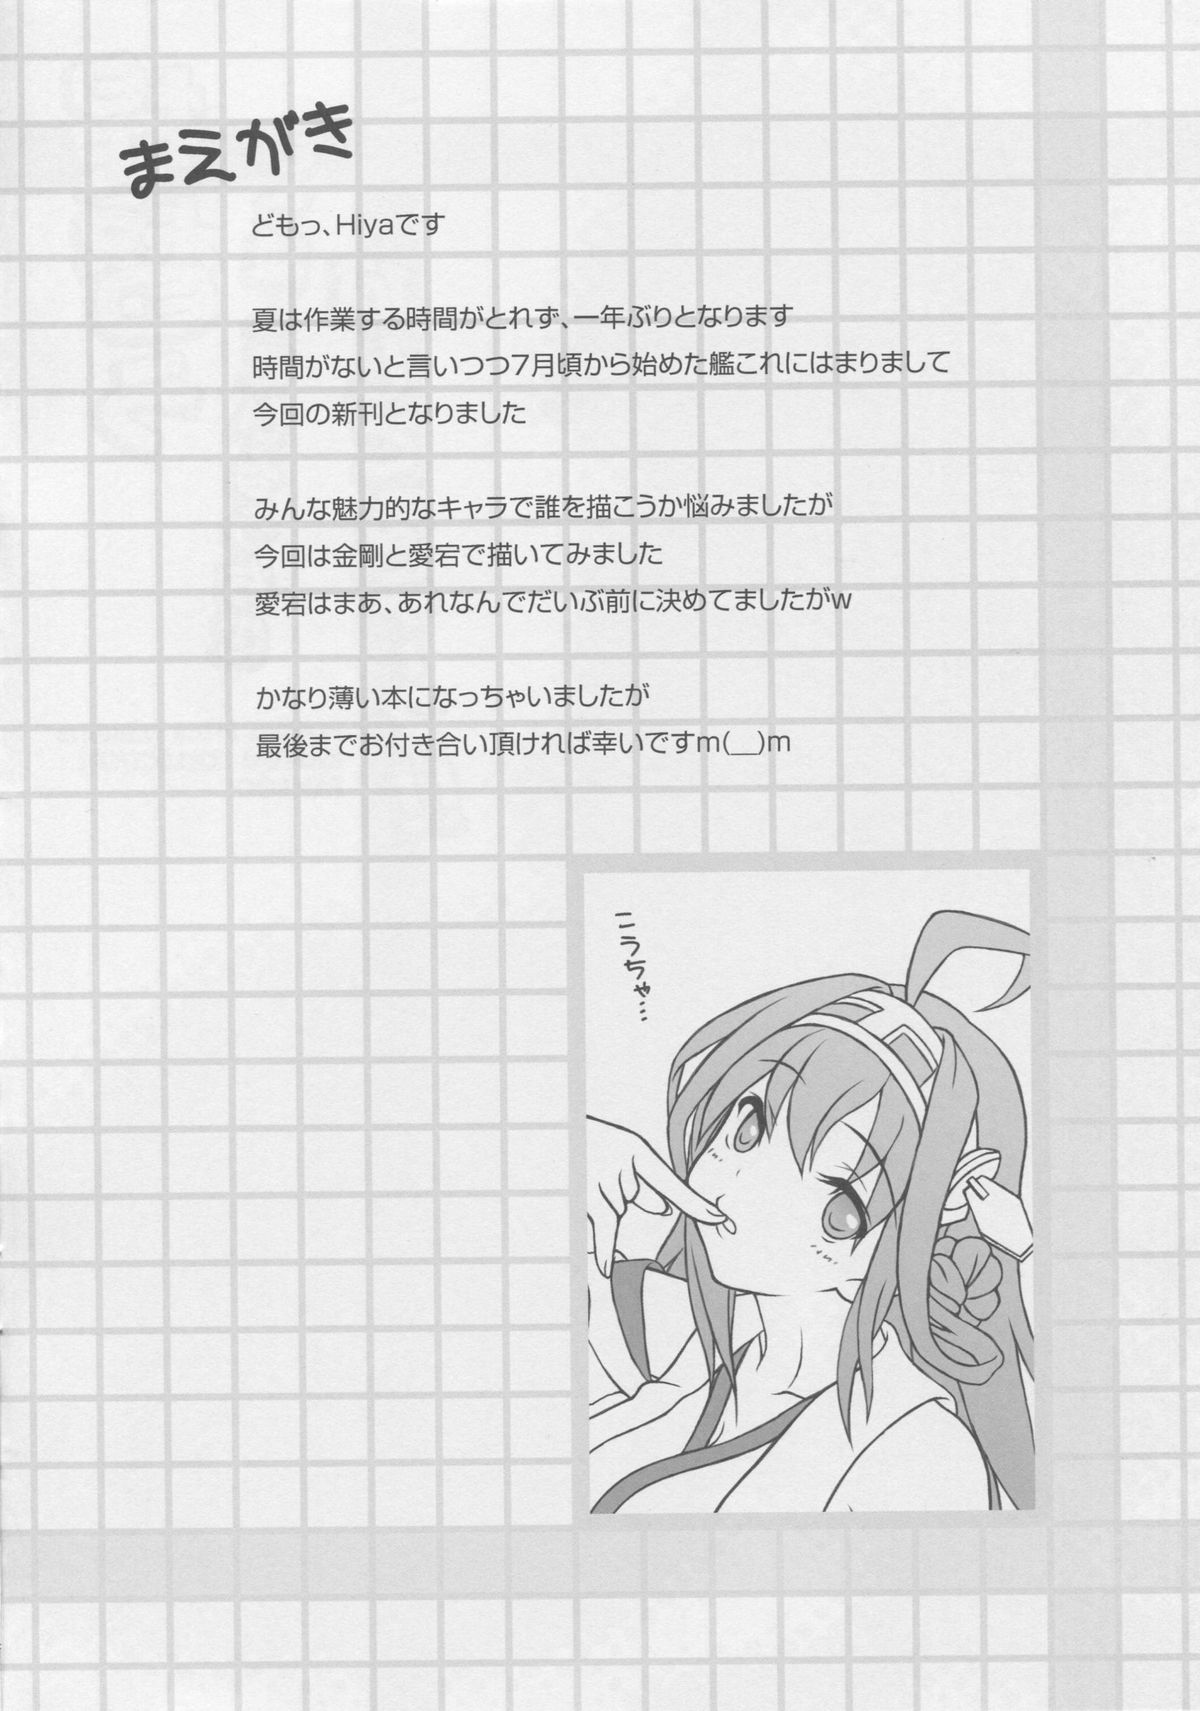 まえがき
どもっ、Hiyaです
夏は作業する時間がとれず、一年ぶりとなります
時間がないと言いつつ7月頃から始めた艦これにはまりまして
今回の新刊となりました
みんな魅力的なキャラで誰を描こうか悩みましたが
今回は金剛と愛宕で描いてみました
愛宕はまあ、あれなんでだいぶ前に決めてましたがw
かなり薄い本になっちゃいましたが
最後までお付き合い頂ければ幸いですm(__)m
こうちゃ…